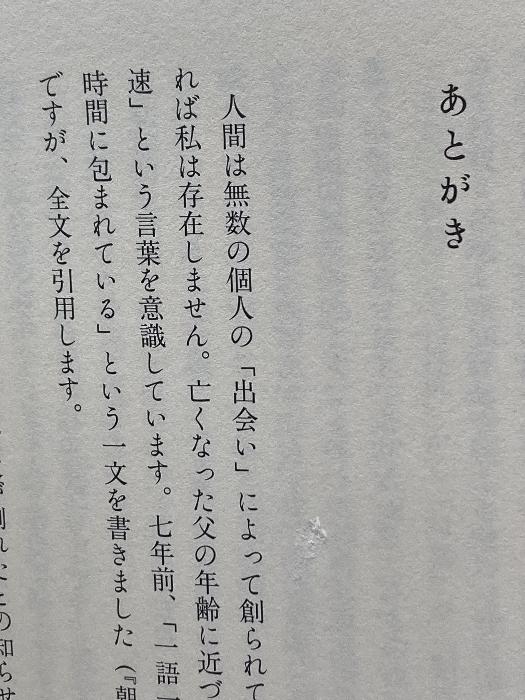 あとがき
人間は無数の個人の「出会い」によって創られて
れば私は存在しません。亡くなった父の年齢に近づ
速」という言葉を意識しています。七年前、「一語一
時間に包まれている」という一文を書きました（『朝
ですが、全文を引用します。
の知らせ